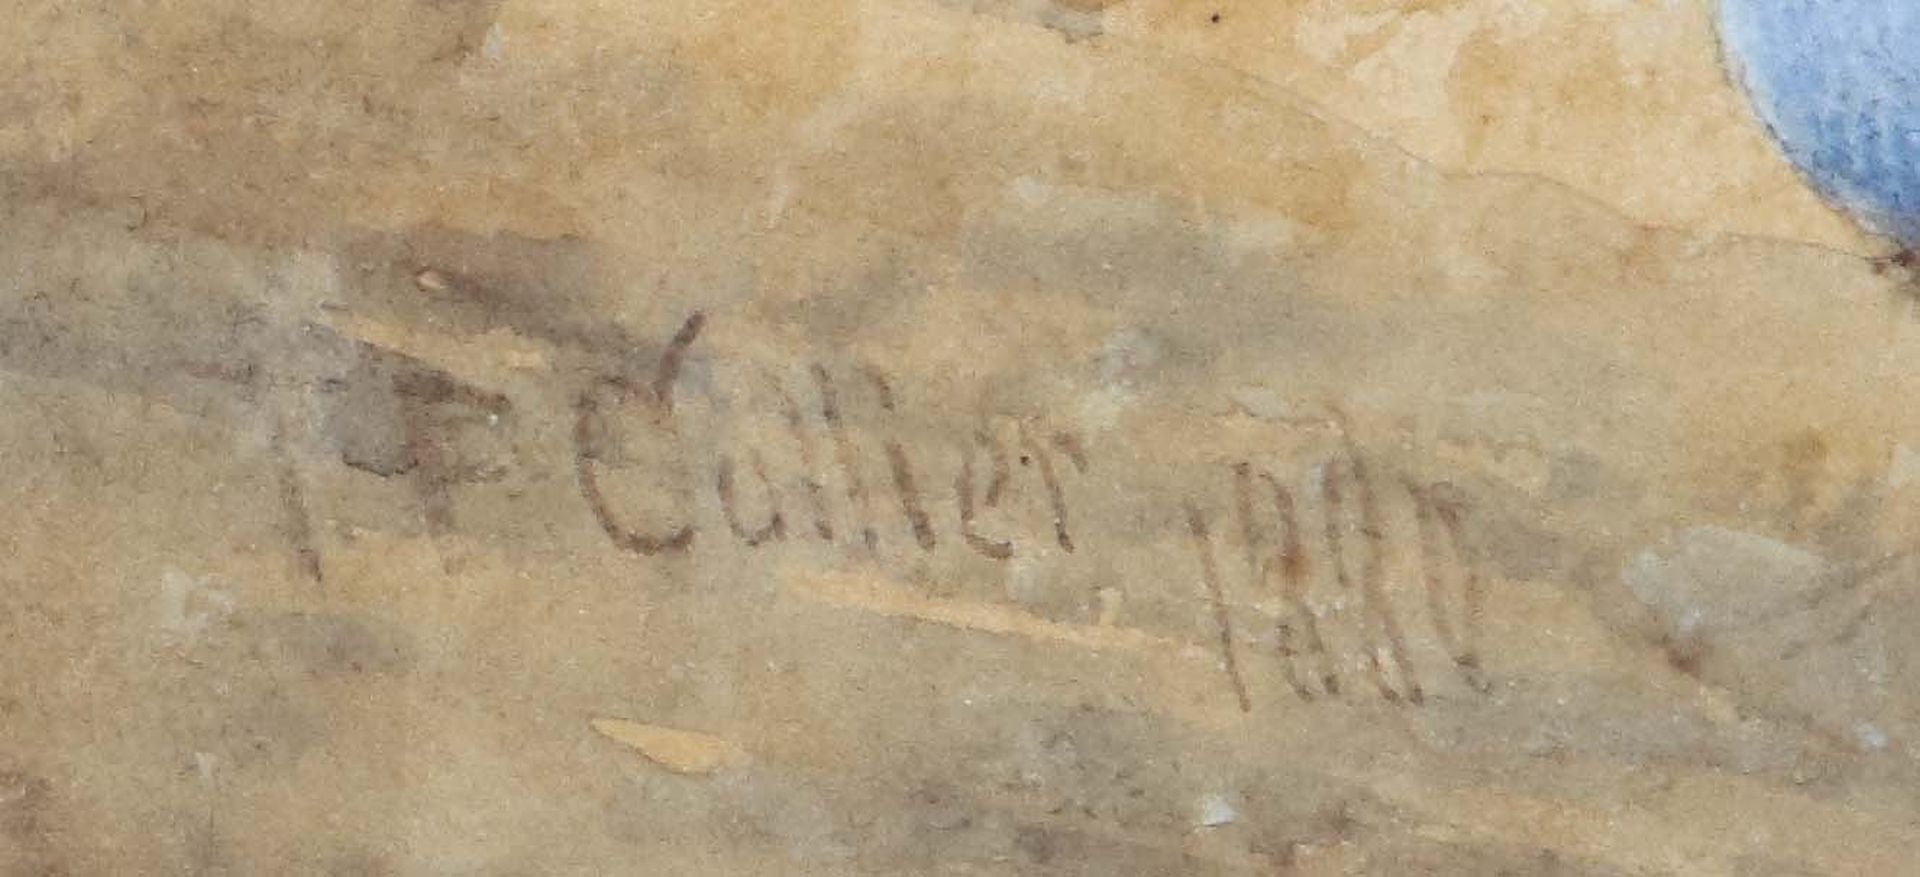 T F Collier 1880